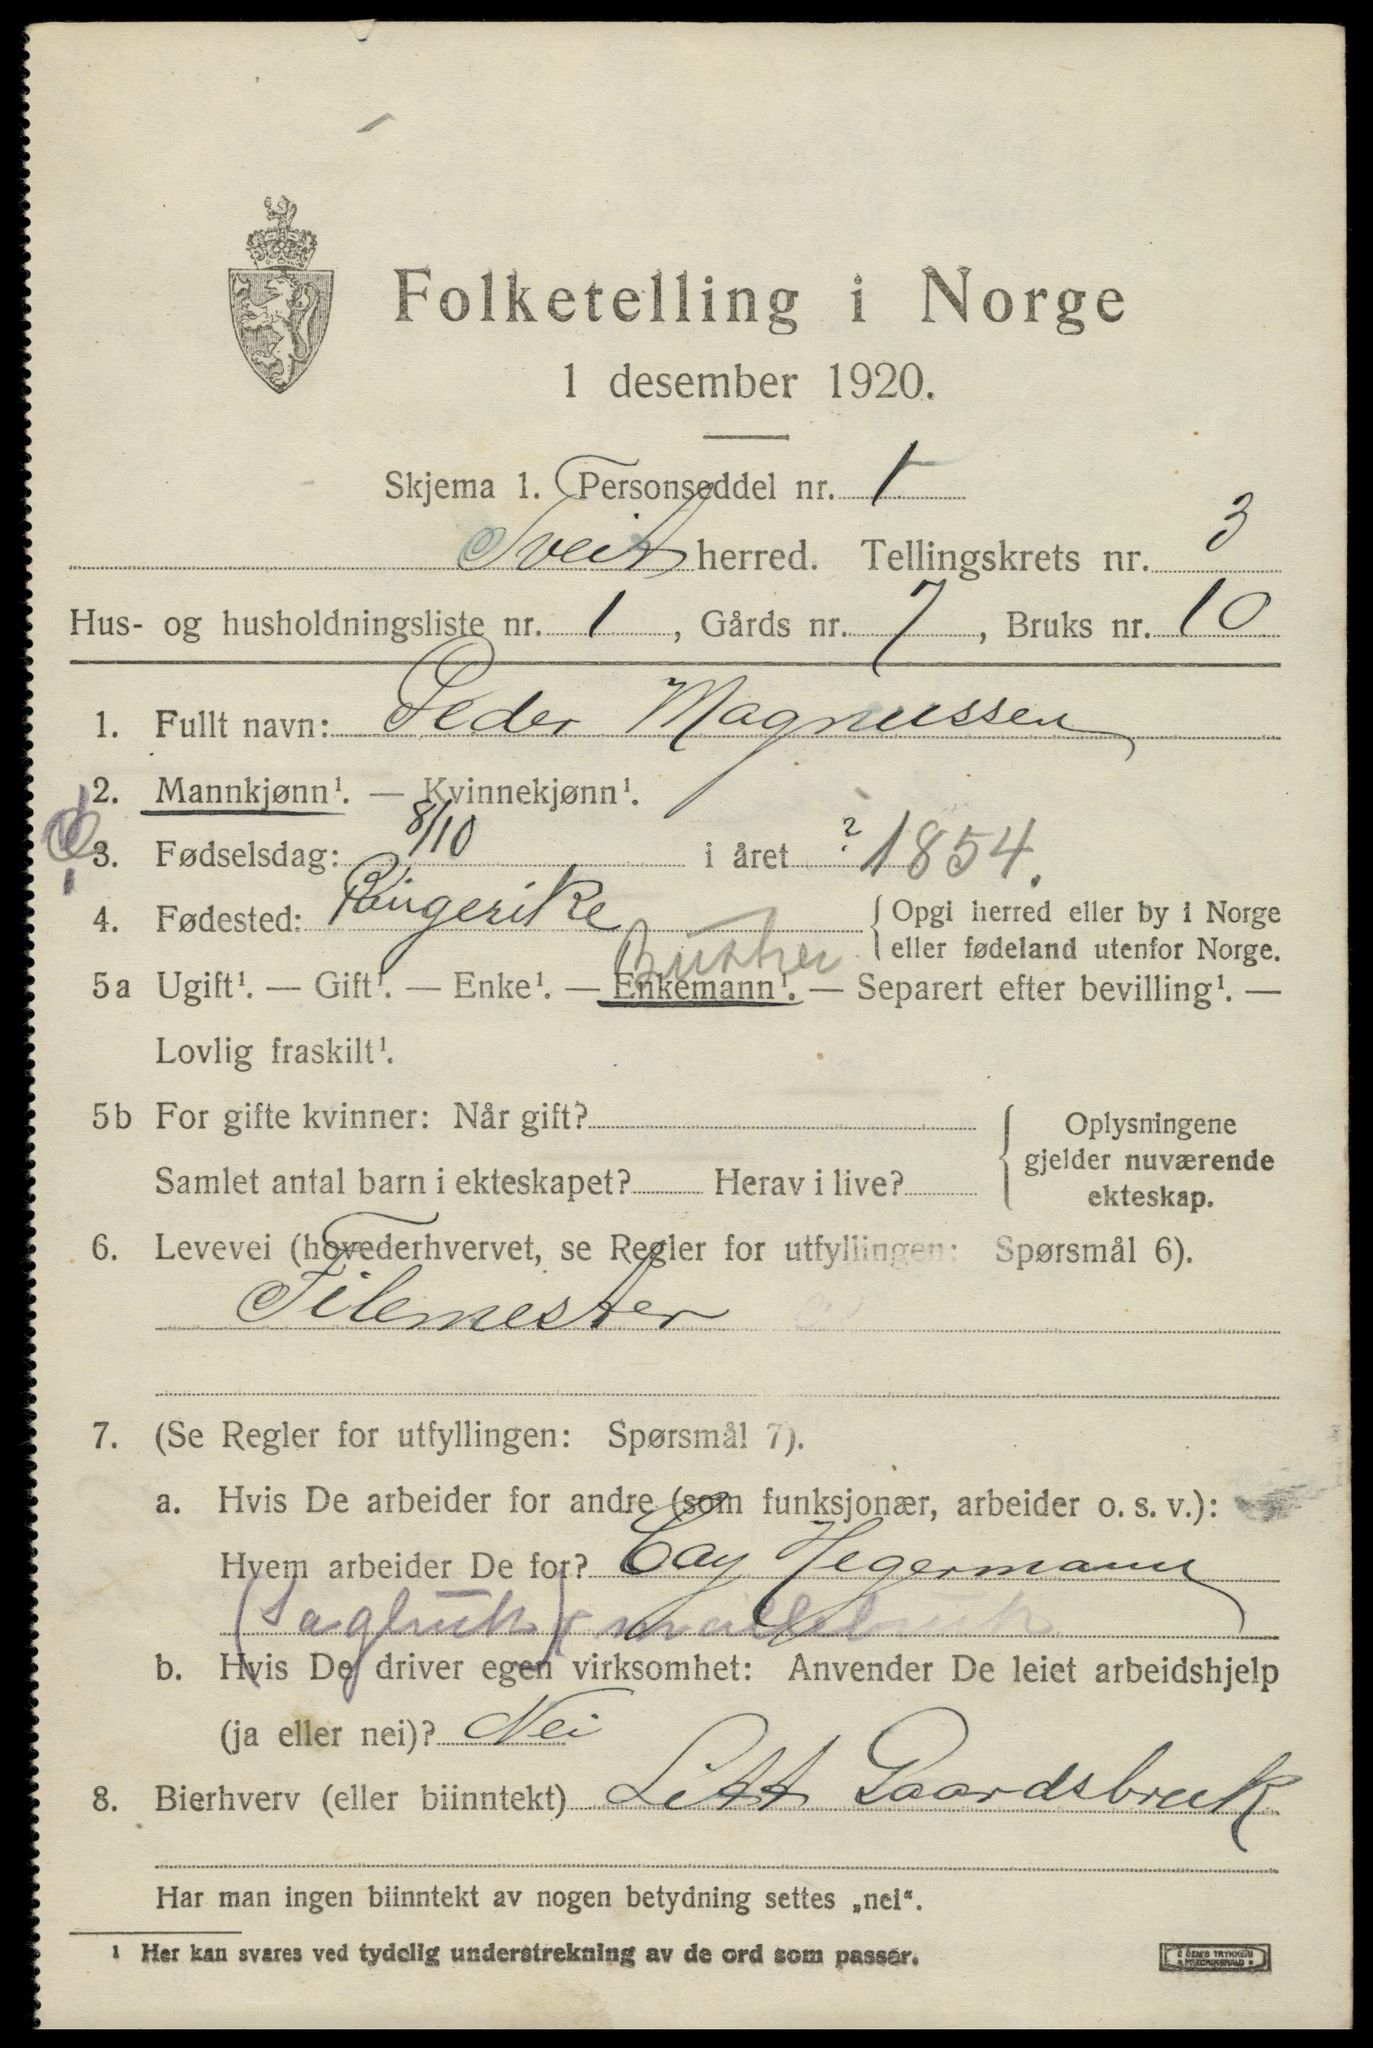 Folketelling i Norge
1 desember 1920.
Skjema 1. Personseddel nr. 1
Tveit herred. Tellingskrets nr. 3
Hus- og husholdningsliste nr. 1, Gårds nr. 7, Bruks nr. 10
1. Fullt navn: Peder Magnussen
2. Mannkjønn¹. — Kvinnekjønn¹.
3. Fødselsdag: 8/10 i året ? 1854.
4. Fødested: Ringerike { Opgi herred eller by i Norge
eller fødeland utenfor Norge.
Busker
5a Ugift¹. — Gift¹. — Enke¹. — Enkemann¹. — Separert efter bevilling¹. —
Lovlig fraskilt¹.
5b For gifte kvinner: Når gift? { Oplysningene
gjelder nuværende
Samlet antal barn i ekteskapet? Herav i live? ekteskap.
6. Levevei (hovederhvervet, se Regler for utfyllingen: Spørsmål 6).
Tilemester
7. (Se Regler for utfyllingen: Spørsmål 7).
a. Hvis De arbeider for andre (som funksjonær, arbeider o. s. v.):
Hvem arbeider De for? Cay Hegermann
(Sagbruk)
b. Hvis De driver egen virksomhet: Anvender De leiet arbeidshjelp
(ja eller nei)? Nei
8. Bierhverv (eller biinntekt) Litt Gaardsbruk
Har man ingen biinntekt av nogen betydning settes „nei“.
¹ Her kan svares ved tydelig understrekning av de ord som passer.